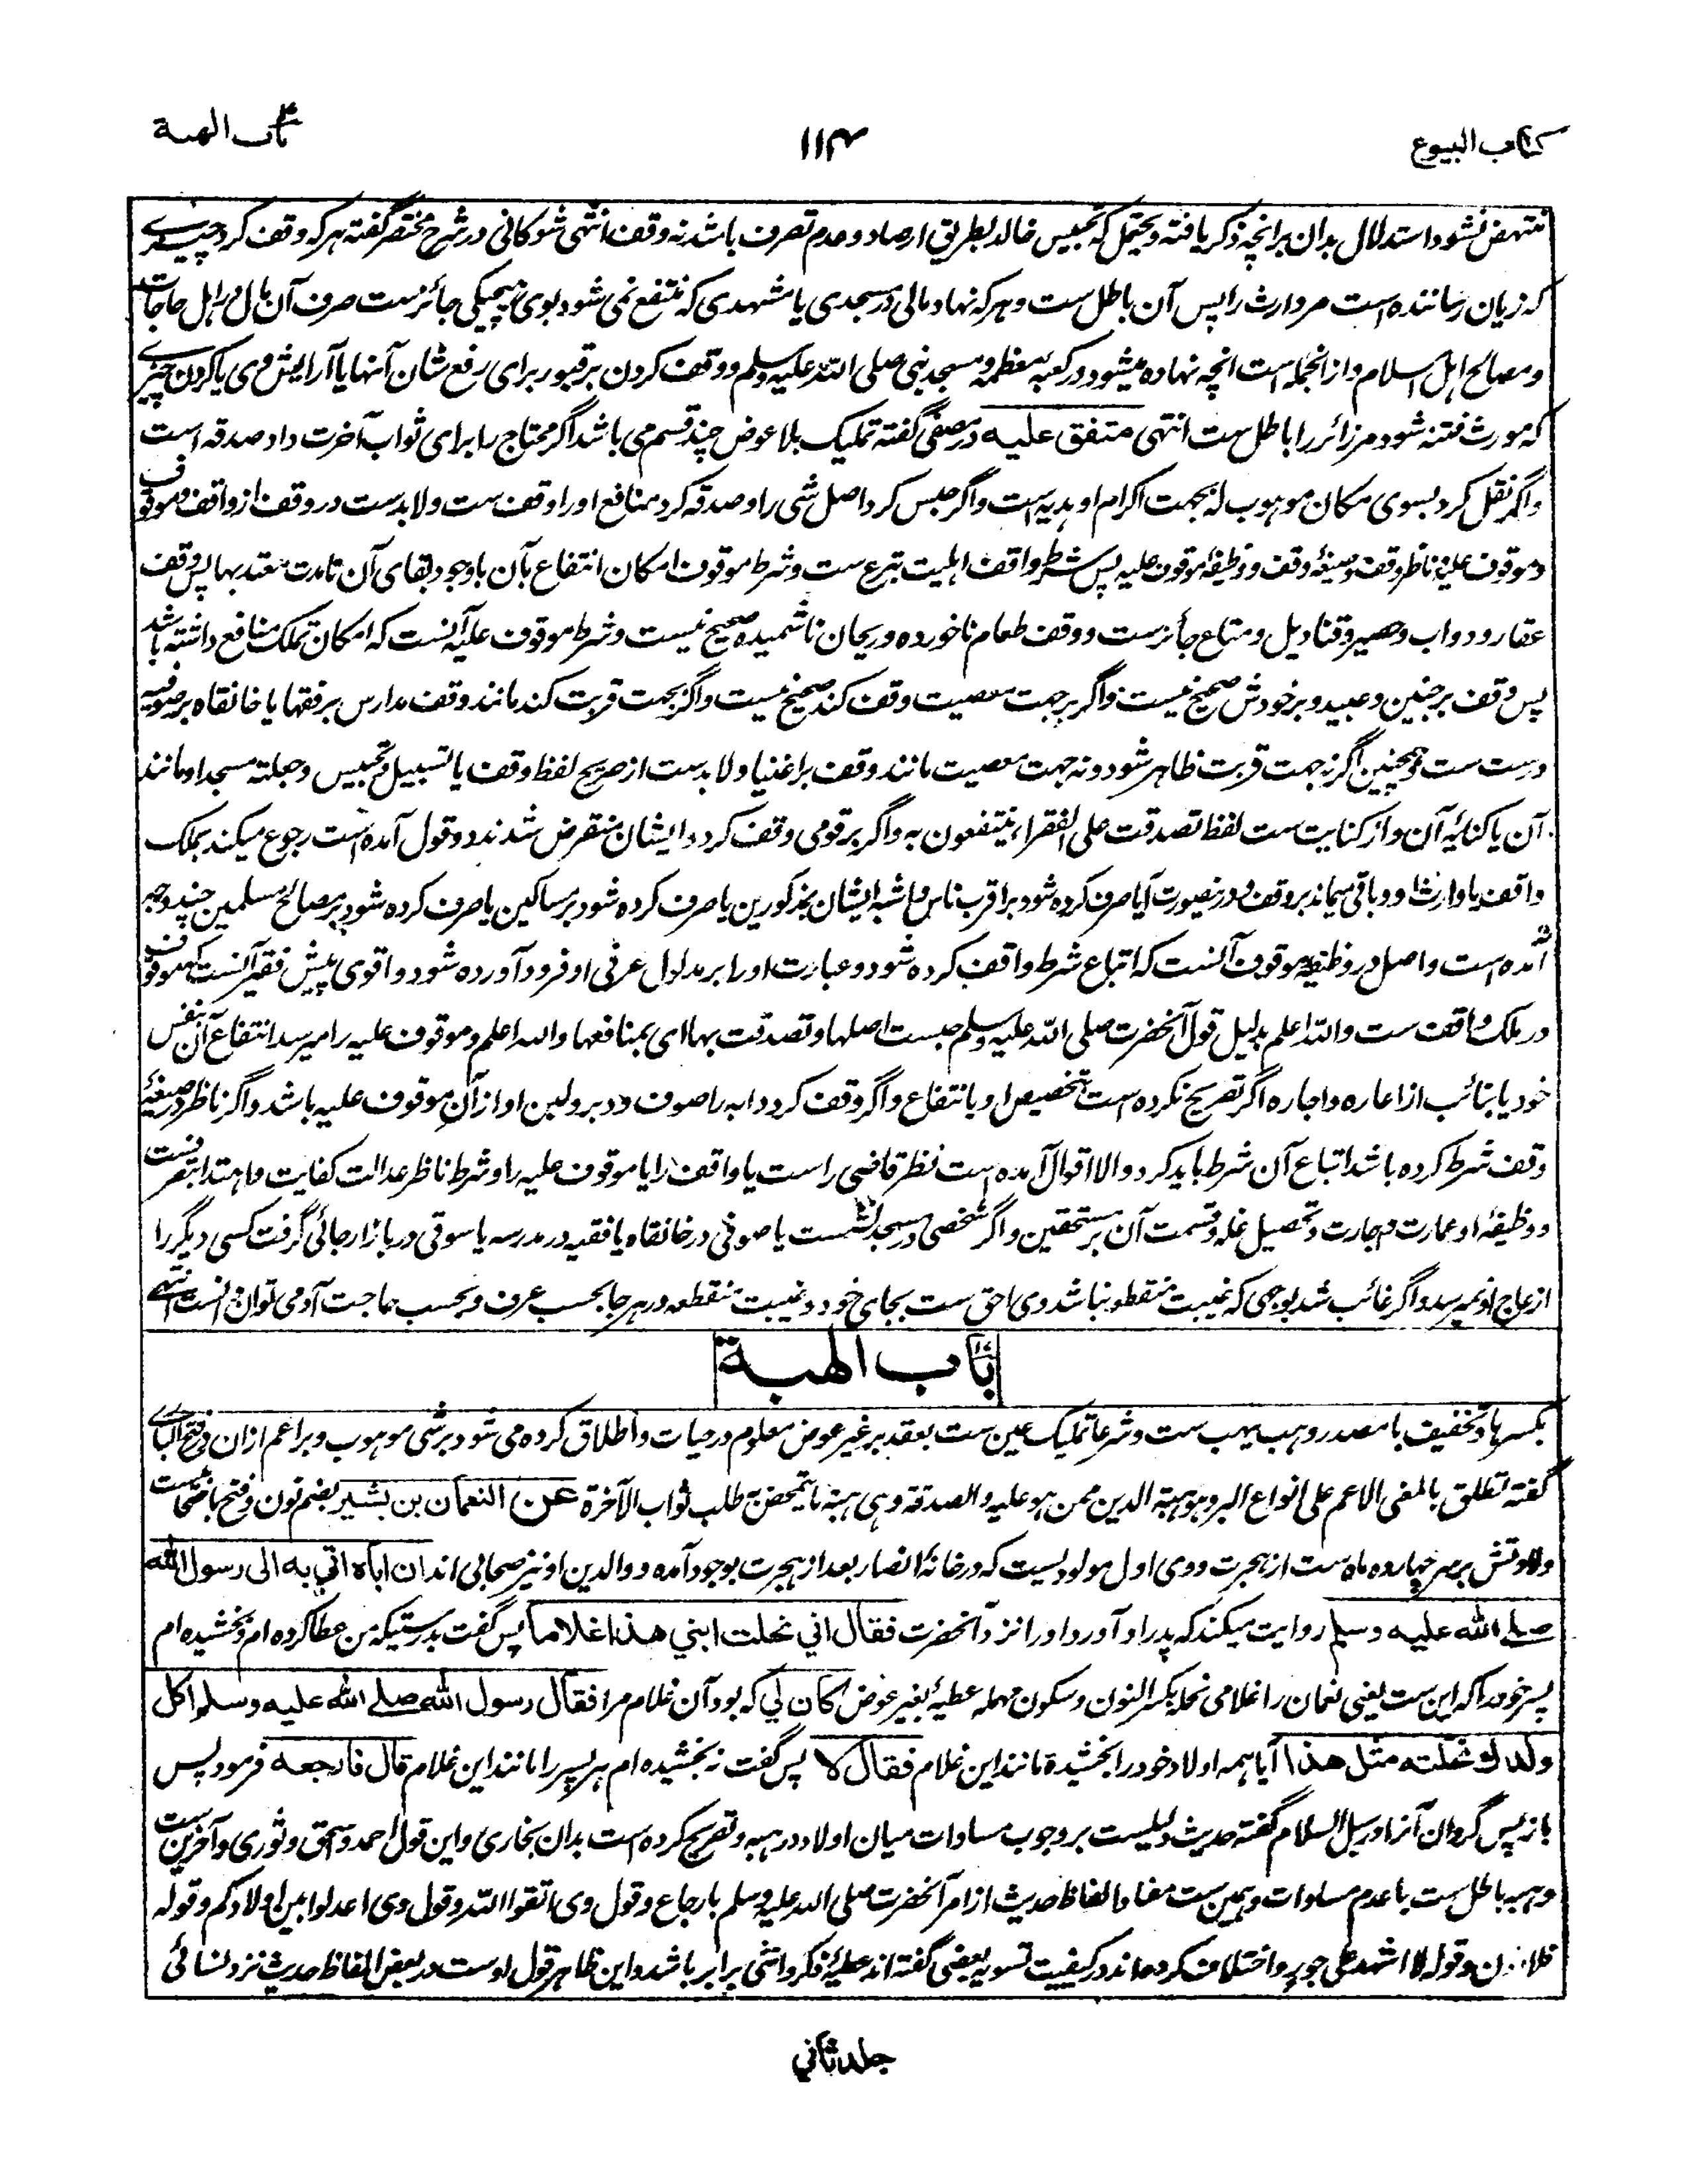 كتاب البيوع
۱۱۴
باب الهبة
منتهض نشود استدلال بدان برانچه ذکر یافته و یحتمل که تحبیس خالد بطریق ارصاد و عدم تصرف باشد نه وقف انتهی شوکانی در شرح مختصر گفته هر که وقف کرد چیزے
که زیان رساننده است مر وارث را پس آن باطل ست و هر که نهاد مالی در مسجدی یا مشهدی که منتفع نمی شود بوی هیچیکی جائزست صرف آن مال در اهل حاجات
و مصالح اهل اسلام و از انجمله است انچه نهاده میشود در کعبه معظمه و مسجد نبی صلی الله علیه وسلم و وقف کردن بر قبور برای رفع شان آنها یا آرایش وی یا کردن چیزے
که مورث فتنه شود مر زائر را باطل ست انتهی متفق عليه در مصفی گفته تملیک بلا عوض چند قسم می باشد اگر محتاج را برای ثواب آخرت داد صدقه است
و اگر نقل کرد بسوی مکان موهوب له بجهت اکرام او هدیه است و اگر حبس کرد اصل شی را و صدقه کرد منافع او را وقف ست و لابدست در وقف از واقف و موقوف
و موقوف علیه و ناظر وقف و صیغهٔ وقف و وظیفهٔ موقوف علیه پس شرط واقف اهلیت تبرع ست و شرط موقوف امکان انتفاع بآن باوجود بقای آن تا مدت معتد بها پس وقف
عقار و دواب و حصیر و قنادیل و متاع جائزست و وقف طعام ناخورده و ریحان ناشمیده صحیح نیست و شرط موقوف علیه آنست که امکان تملک منافع داشته باشد
پس وقف بر جنین و عبید و بر خودش صحیح نیست و اگر بر جهت معصیت وقف کند صحیح نیست و اگر بجهت قربت کند مانند وقف مدارس بر فقها یا خانقاه بر صوفیه
درست ست و همچنین اگر نه جهت قربت ظاهر شود و نه جهت معصیت مانند وقف بر اغنیا و لابدست از صریح لفظ وقف یا تسبیل و تحبیس و جعلته مسجدا و مانند
آن یا کنایهٔ آن و از کنایت ست لفظ تصدقت علی الفقراء ینتفعون به و اگر بر قومی وقف کرد و ایشان منقرض شدند دو قول آمده است رجوع میکند بملک
واقف یا وارث او و باقی میماند بر وقف و درینصورت آیا صرف کرده شود بر اقرب ناس و اشبه ایشان بمذکورین یا صرف کرده شود بر مساکین یا صرف کرده شود بر مصالح مسلمین چند وجه
آمده است و اصل در وظیفه موقوف آنست که اتباع شرط واقف کرده شود و عبارت او را بر مدلول عرفی او فرود آورده شود و اقوی پیش فقیر آنست که موقوف
در ملک واقف ست والله اعلم بدلیل قول آنحضرت صلی الله علیه وسلم حبست اصلها و تصدقت بها ای بمنافعها والله اعلم و موقوف علیه را میرسد انتفاع آن بنفس
خود یا بنائب از اعاره و اجاره اگر تصریح نکرده است بتخصیص او بانتفاع و اگر وقف کرد دابه را صوف و وبر و لبن او از آن موقوف علیه باشد و اگر ناظر در صیغهٔ
وقف شرط کرده باشد اتباع آن شرط باید کرد و الا اقوال آمده است نظر قاضی راست یا واقف را یا موقوف علیه را و شرط ناظر عدالت کفایت و اهتدا بتصرفست
و وظیفهٔ او عمارت و اجارت و تحصیل غله و قسمت آن بر مستحقین و اگر شخصی در مسجد نشست یا صوفی در خانقاه یا فقیه در مدرسه یا سوقی در بازار جائی گرفت کسی دیگر را
ازعاج او نمیرسد و اگر غائب شد بوجهی که غیبت منقطعه نباشد وی احق ست بجای خود و غیبت منقطعه در هر جا بحسب عرف و بحسب حاجت آدمی توان دانست انتهے
باب الهبة
بکسر ها و تخفیف با مصدر وهب یهب ست و شرعا تملیک عین ست بعقد بر غیر عوض معلوم در حیات و اطلاق کرده می شود بر شی موهوب و بر اعم ازان در فتح الباری
گفته تطلق بالمعنی الاعم علی انواع البر و هو هبة الدین ممن هو علیه و الصدقة و هی هبة ما یتمحض به طلب ثواب الآخرة عن النعمان بن بشير بضم نون و فتح با صحابیست
ولادتش بر سر چهارده ماه ست از هجرت و وی اول مولودیست که در خانهٔ انصار بعد از هجرت بوجود آمده و والدین او نیز صحابی اند ان اباه اتي به الى رسول الله
صلے الله عليه وسلم روایت میکند که پدر او آورد او را نزد آنحضرت فقال اني نحلت ابني هذا غلاما پس گفت بدرستیکه من عطا کرده ام و بخشیده ام
پسر خود را که این ست یعنی نعمان را غلامی نحله بکسر النون و سکون مهمله عطیهٔ بغیر عوض كان لي که بود آن غلام مرا فقال رسول الله صلے الله عليه وسلم اكل
ولدك نحلته مثل هذا آیا همه اولاد خود را بخشیدهٔ مانند این غلام فقال لا پس گفت نه بخشیده ام هر پسر را مانند این غلام قال فارجعه فرمود پس
باز پس گردان آنرا در سبل السلام گفته حدیث دلیلیست بر وجوب مساوات میان اولاد در هبه و تصریح کرده است بدان بخاری و این قول احمد و اسحق و ثوری و آخرین ست
و هبه باطل ست با عدم مساوات و همین ست مفاد الفاظ حدیث از امر آنحضرت صلی الله علیه وسلم بارجاع و قول وی اتقوا الله و قول وی اعدلوا بین اولادکم و قوله
فلا اذن و قوله لا اشهد علی جور و اختلاف کرده اند در کیفیت تسویه بعضی گفته اند عطیهٔ ذکر و انثی برابر باشد و این ظاهر قول اوست در بعض الفاظ حدیث نزد نسائی
جلد ثاني